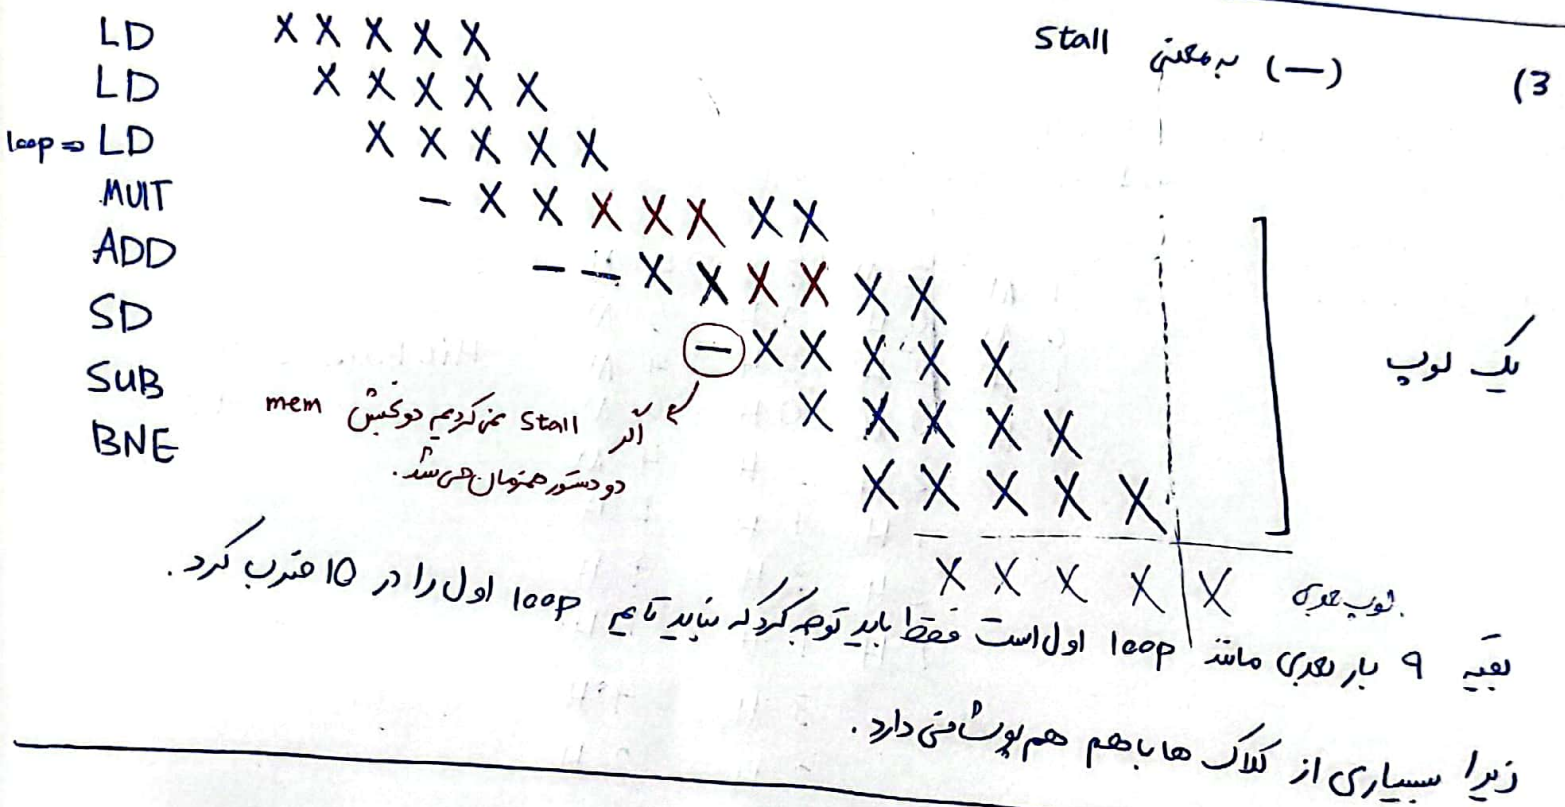 3) (—) به معنی Stall
LD X X X X X
LD X X X X X
loop ⇒ LD X X X X X
MUlT — X X X X X X X
ADD — — X X X X X X
SD — X X X X X
SUB X X X X X
BNE X X X X X
یک لوپ
اگر Stall نمی‌کردیم دو بخش mem
دو دستور همزمان می‌شد.
X X X X X لوپ بعدی
بقیه 9 بار بعدی مانند loop اول است فقط باید توجه کرد که نباید تایم loop اول را در 10 ضرب کرد.
زیرا بسیاری از کلاک ها باهم هم پوشانی دارد.